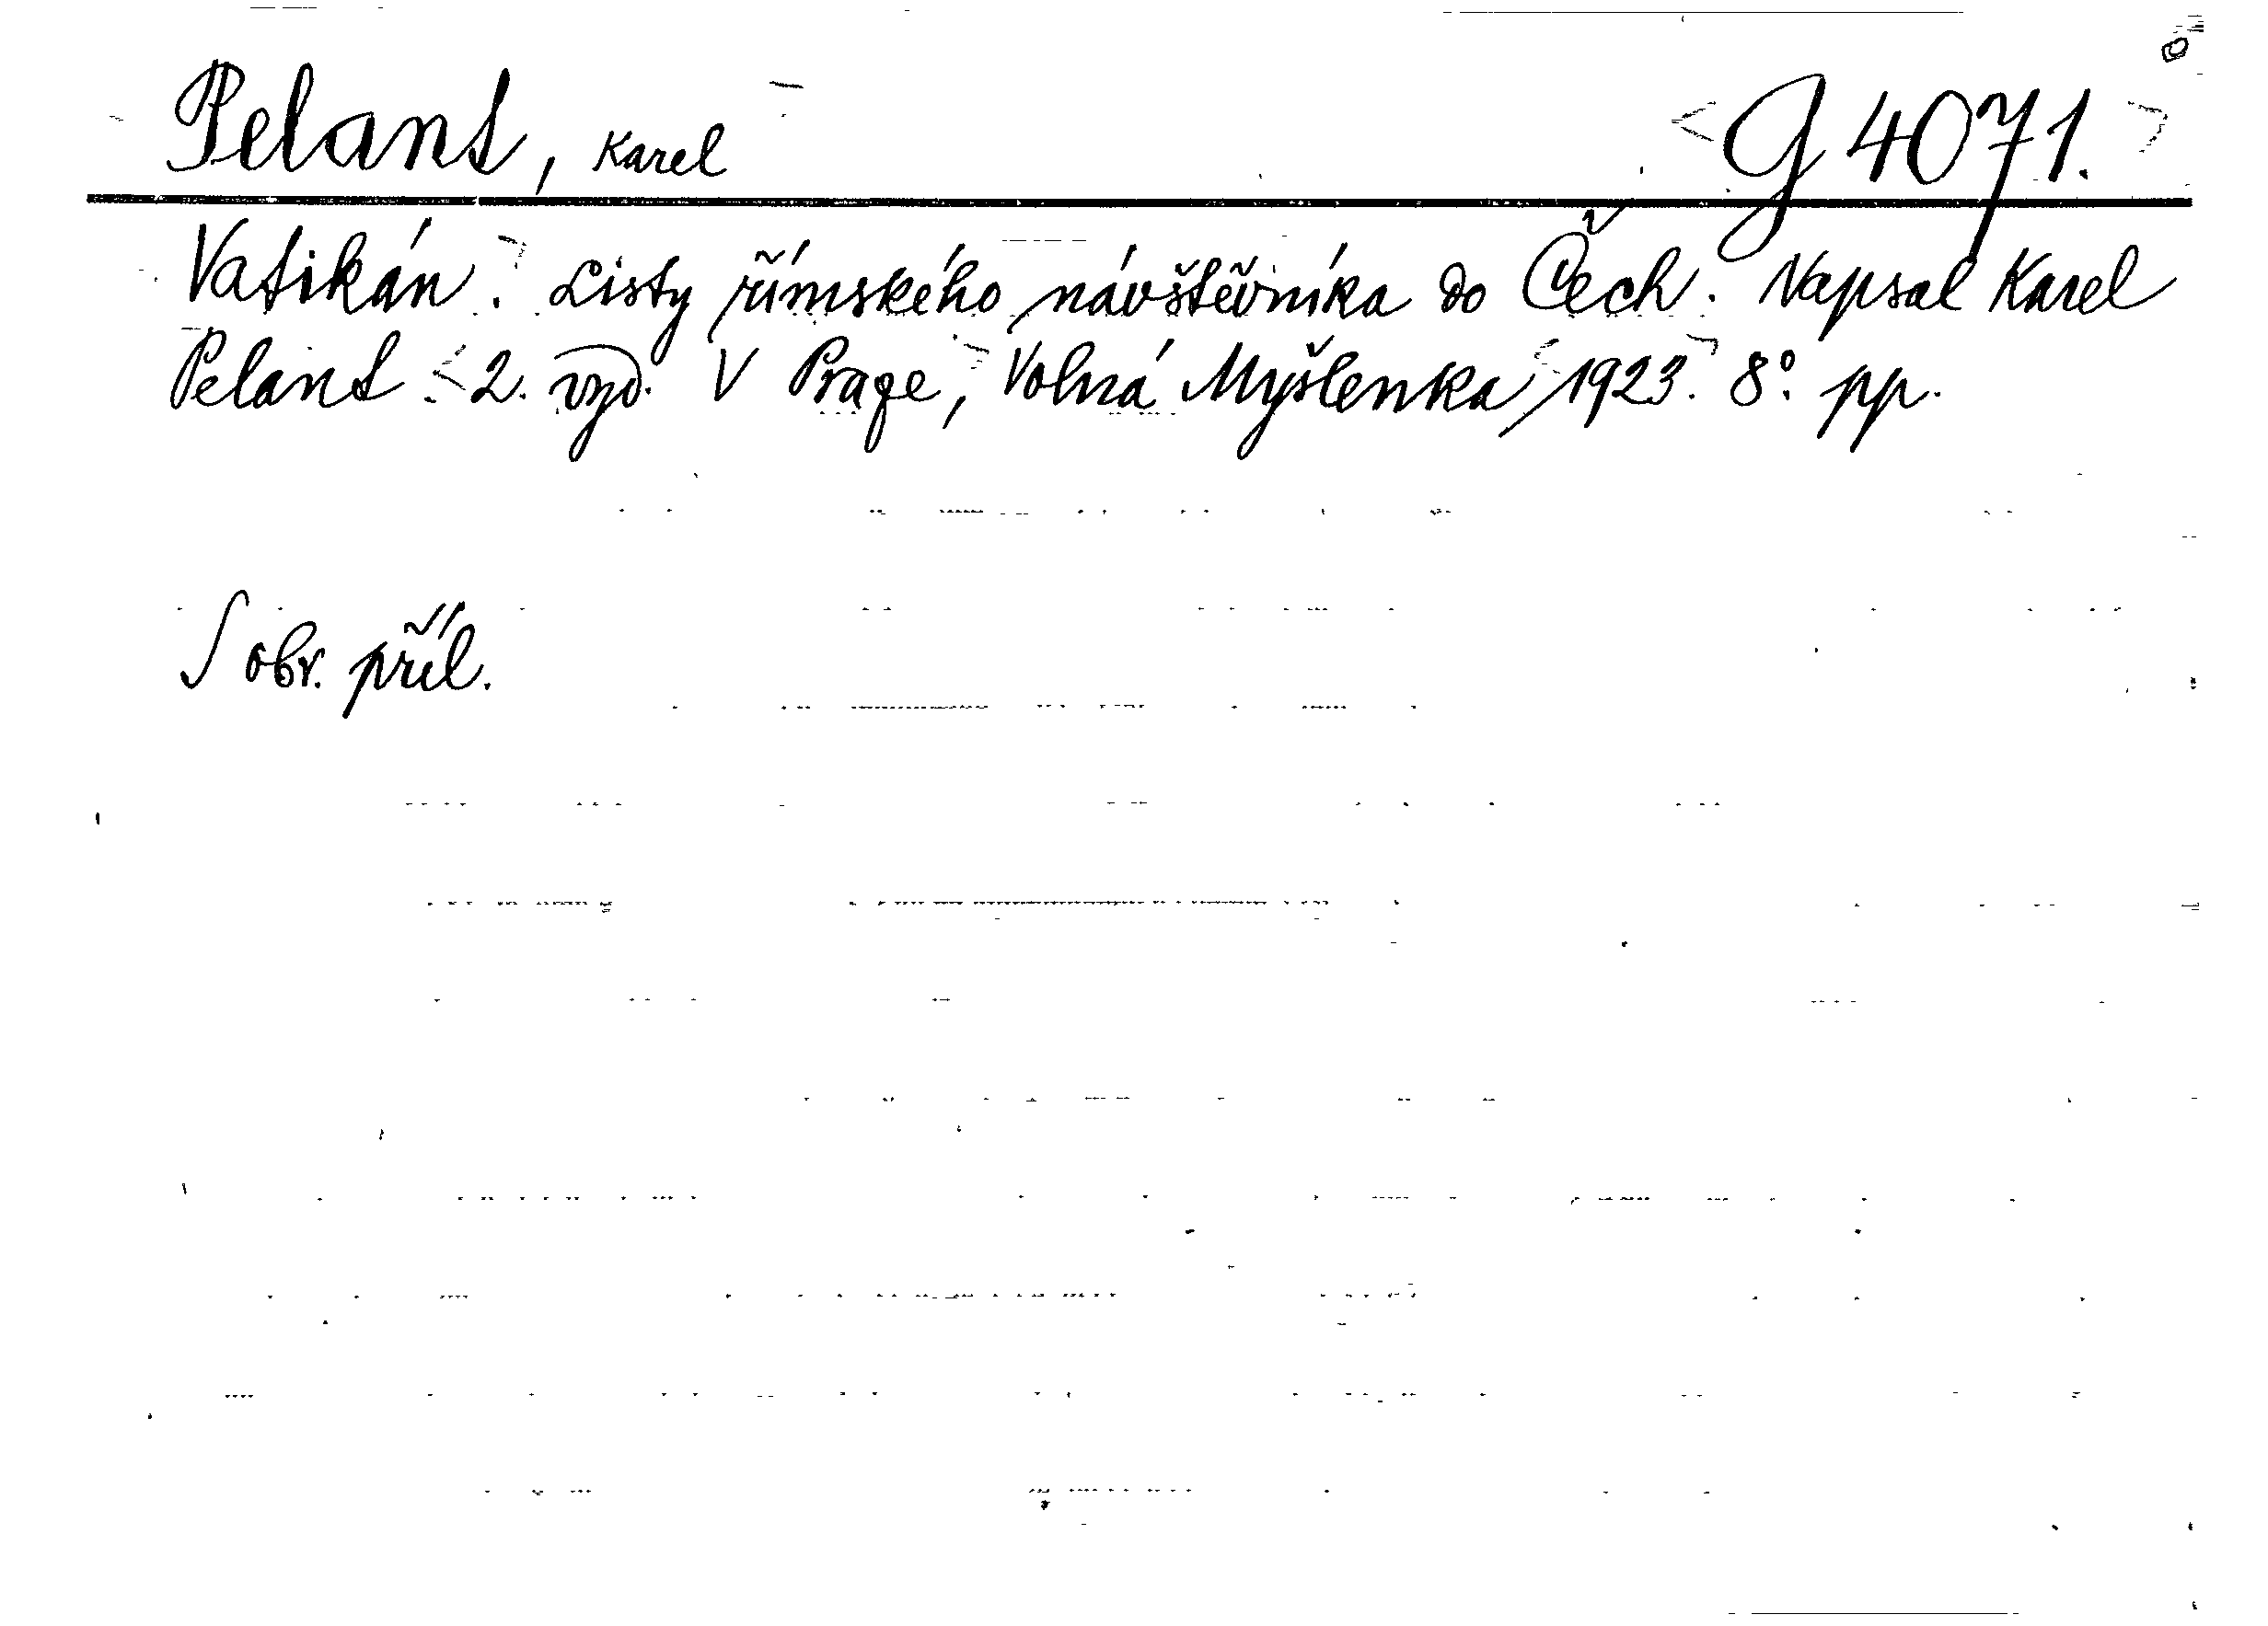 Pelant, Karel G 4071.
Vatikán. Listy římského návštěvníka do Čech. Napsal Karel
Pelant. 2. vyd. V Praze, Volná Myšlenka, 1923. 8°. pp.
S obr. příl.